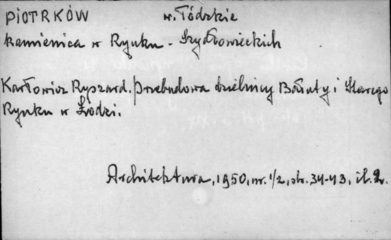 PIOTRKÓW w. Łódzkie
kamienica w Rynku - Szydłowieckich
Karłowicz Ryszard. Przebudowa dzielnicy Bałuty i Starego
Rynku w Łodzi.
Architektura, 1950, nr. 1/2, str. 34-43, il. 2.